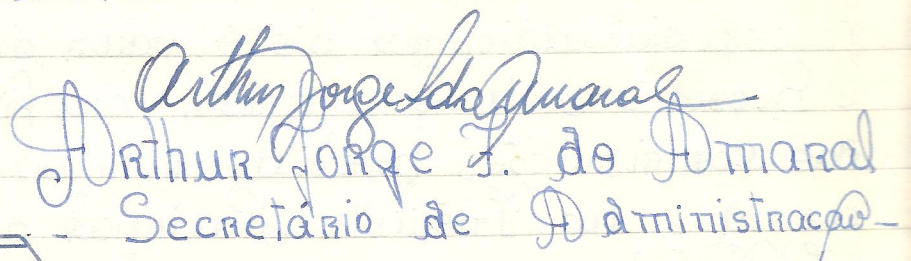 Arthur Jorge F do Amaral
Arthur Jorge F. do Amaral
Secretário de Administração